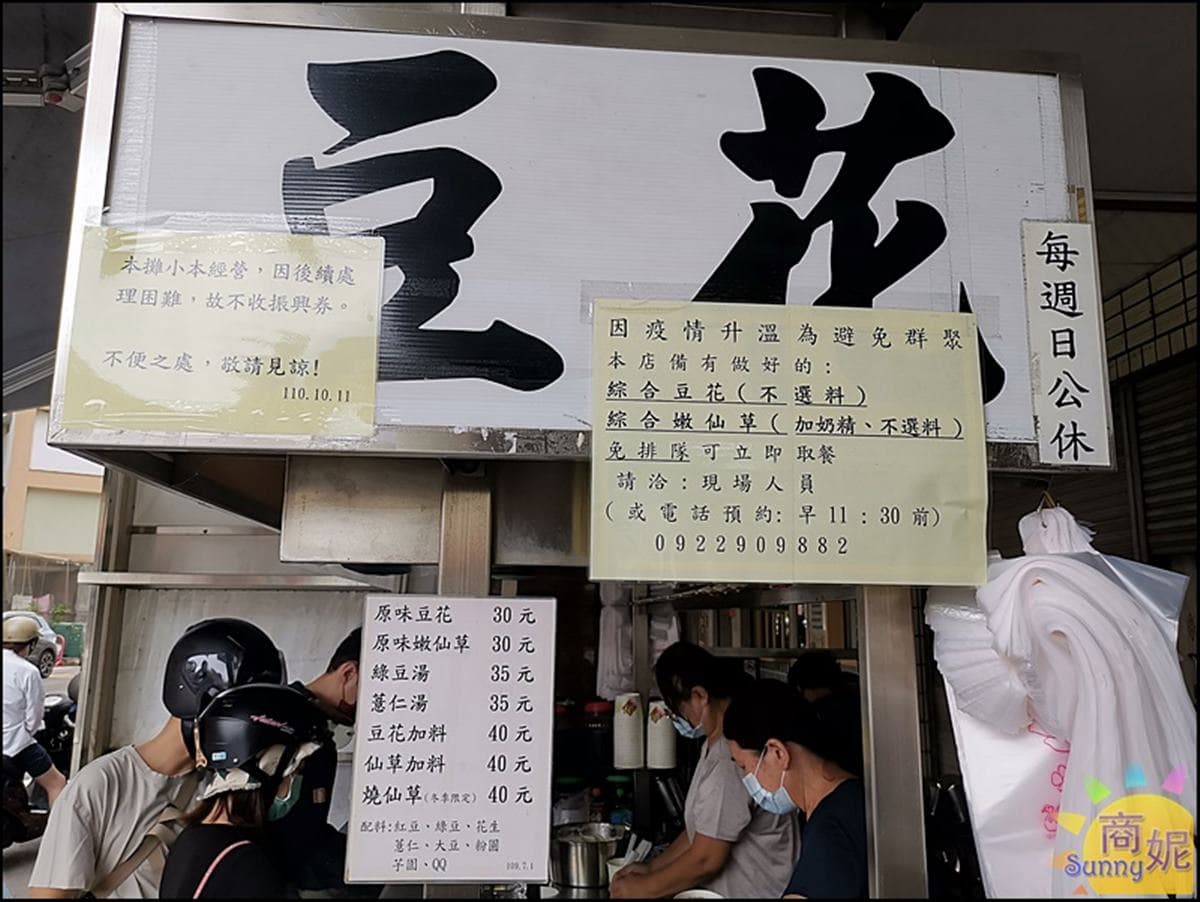 豆花
本攤小本經營，因後續處
理困難，故不收振興券。
不便之處，敬請見諒！
110.10.11
因疫情升溫為避免群聚
本店備有做好的：
綜合豆花（不選料）
綜合嫩仙草（加奶精、不選料）
免排隊可立即取餐
請洽：現場人員
（或電話預約：早11：30前）
0922909882
每週日公休
原味豆花 30元
原味嫩仙草 30元
綠豆湯 35元
薏仁湯 35元
豆花加料 40元
仙草加料 40元
燒仙草（冬季限定） 40元
配料：紅豆、綠豆、花生
薏仁、大豆、粉圓
芋圓、QQ
109.7.1
商妮
Sunny